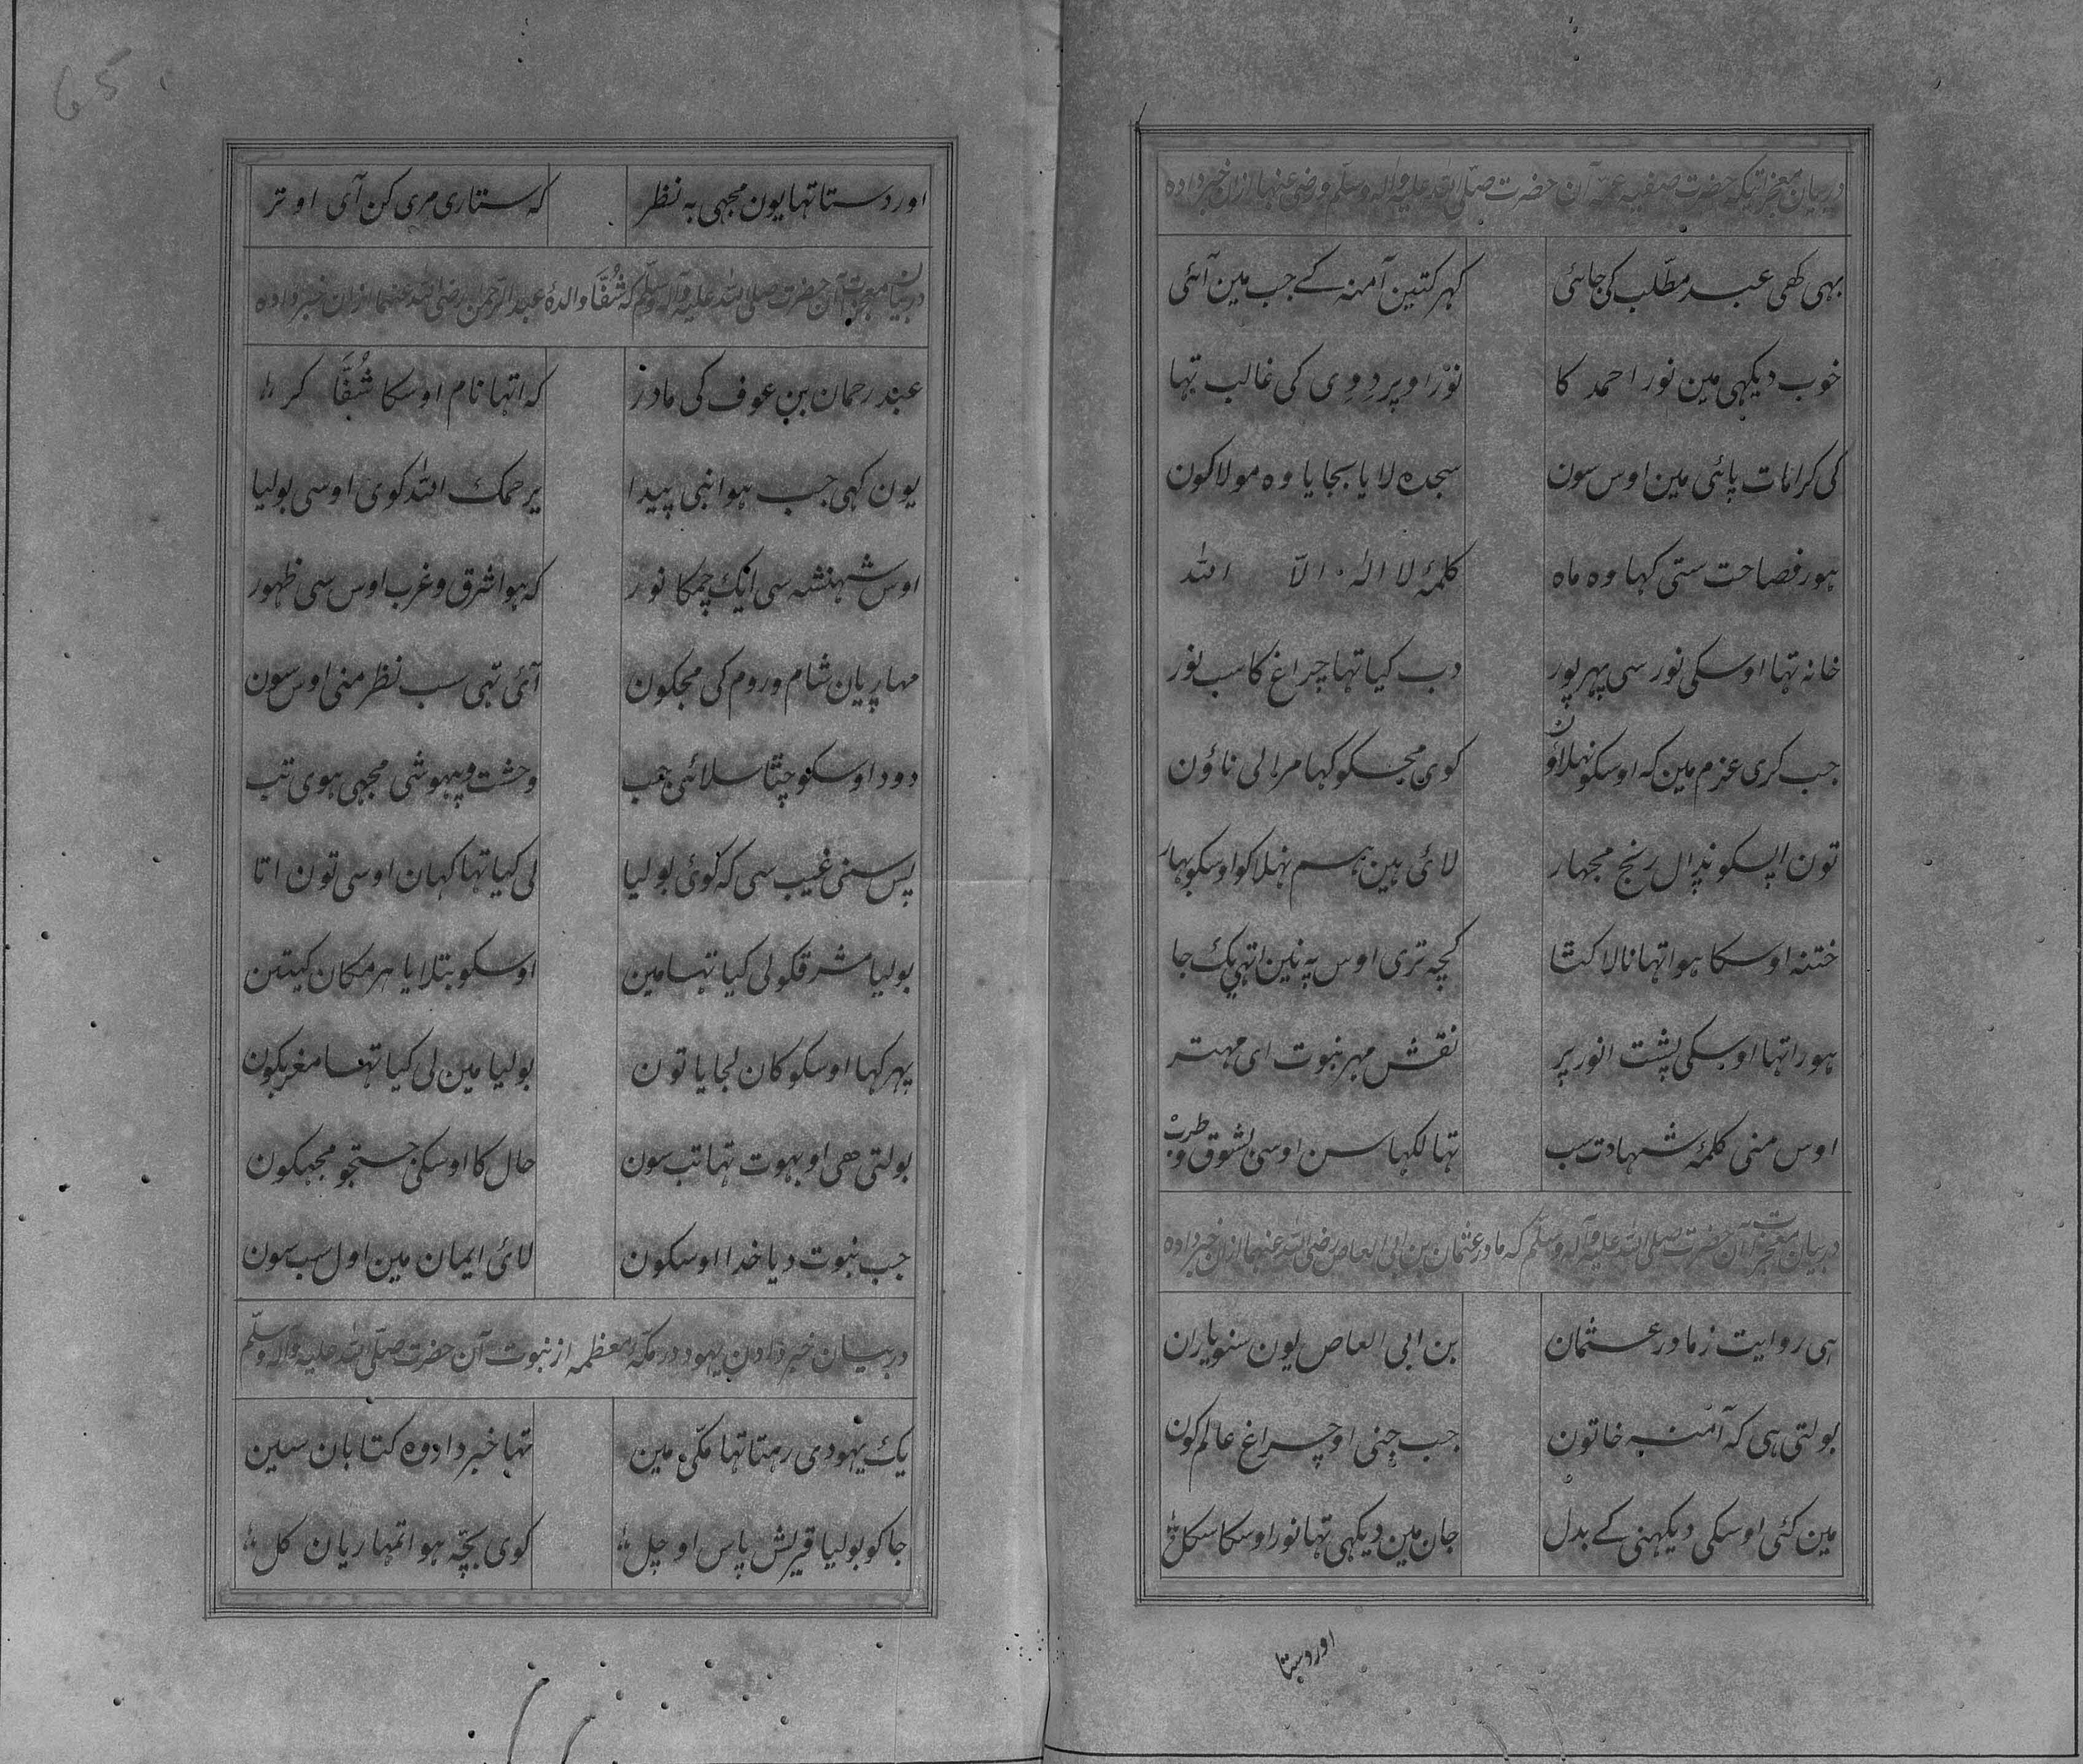 در بیان معجزاتیکه حضرت صفیه عمهٔ آن حضرت صلی الله علیه و اله وسلم و رضی عنها ازان خبر داده
بهی کهی عبد مطّلب کی جائی کهر کتین آمنه کے جب مین آئی
خوب دیکهی مین نور احمد کا نور اوپر دِوِی کی غالب تها
کی کرامات پائی مین اوس سون سجده لایا بجایا وه مولا کون
هور فصاحت ستی کہا وه ماه کلمهٔ لا اله الّا الله
خانه تها اوسکی نور سی پهرپور دب کیا تها چراغ کا سب نور
جب کری عزم مین که اوسکو نهلاؤن کوی مجسکو کها مرا لی ناؤن
تون اپسکو نپرال رنج مجهار لائی هین هم نهلا کو اوسکو بهار
ختنه اوسکا هوا تها نالا کتا کچه تری اوس په نین اتهی یک جا
هور اتها اوسکی پشت انور پر نقش مهر نبوت ای مهتر
اوس منی کلمهٔ شهادت سب تها لکها سن اوسی بشوق و طرب
در بیان معجزات آن حضرت صلی الله علیه و آله وسلّم که مادر عثمان بن ابی العاص رضی الله عنهما ازان خبر داده
هی روایت ز مادر عثمان بن ابی العاص یون سنو یاران
بولتی هی که آمنه خاتون جب جنی او چراغ عالم کون
مین کئی اوسکی دیکهنی کے بدل جان مین دیکهی تها نور اوسکا سکل
اور دستا
اور دستا تها یون مجهی به نظر که ستاری مری کن آی اوتر
در بیان معجزات آن حضرت صلی الله علیه و آله وسلّم که شُفّا والدهٔ عبد الرّحمان رضی الله عنهما ازان خبر داده
عبد رحمان بن عوف کی مادر که اتها نام اوسکا شُفّا کر
یون کهی جب هوا نبی پیدا یرحمک الله کوی اوسی بولیا
اوس شهنشه سی ایک چمکا نور که هوا شرق و غرب اوس سی ظهور
مهاریان شام و روم کی مجکون آئی تهی سب نظر منی اوس سون
دود اوسکو چتا سلائی جب وحشت و بیهوشی مجهی هوی تب
پس سنی غیب سی که کوئی بولیا لی کیا تها کهان اوسی تون اتا
بولیا مشرق کو لی کیا تها مین اوسکو بتلایا هر مکان کیتین
پهر کها اوسکو کان لجایا تون بولیا مین لی کیا تها مغرب کون
بولتی هی او بهوت تها تب سون حال کا اوسکی جستجو مجهکون
جب نبوت دیا خدا اوسکون لائی ایمان مین اول سب سون
در بیان خبر دادن یهود در مکّه معظمه از نبوت آن حضرت صلّی الله علیه و اله وسلّم
یک یهودی رهتا تها مکّی مین تها خبردا او وه کتابان سین
جا کو بولیا قریش پاس او چل کوی بچّه هوا تمهاریان کل